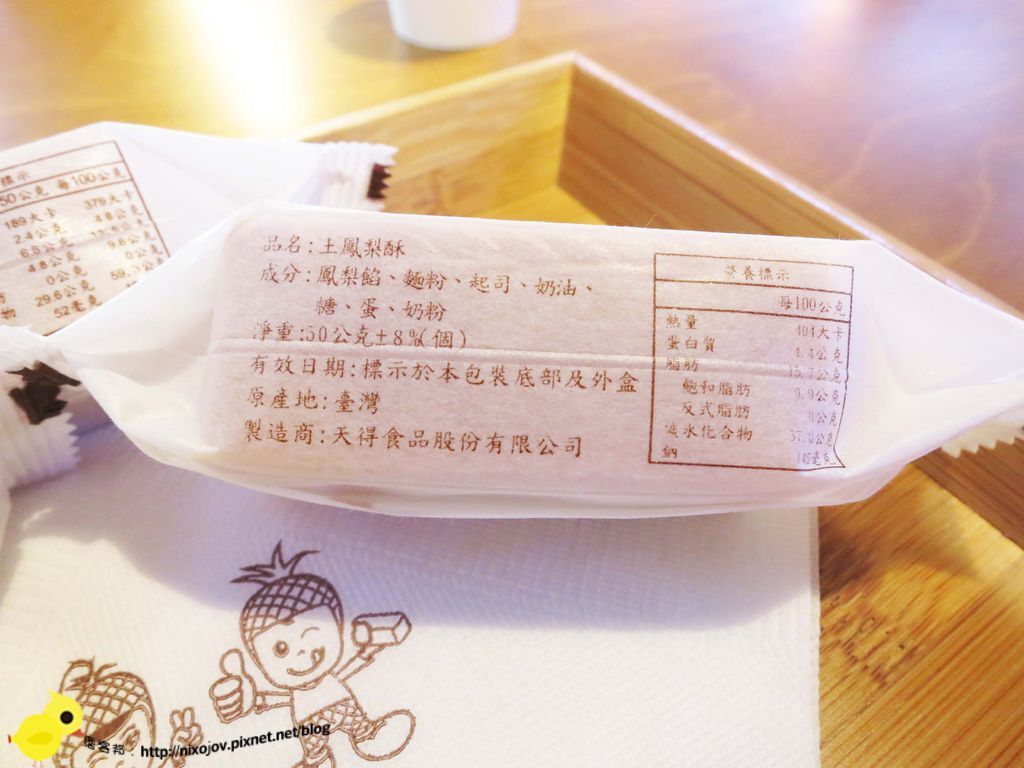 標示
50公克 每100公克
189大卡 379大卡
2.4公克 4.8公克
6.8公克
4.8公克 9.6公克
0公克 0公
29.6公克 59.
物 52毫克
品名:土鳳梨酥
成分:鳳梨餡、麵粉、起司、奶油、
糖、蛋、奶粉
淨重:50公克±8%(個)
有效日期:標示於本包裝底部及外盒
原產地:臺灣
製造商:天得食品股份有限公司
營養標示
每100公克
熱量 404大卡
蛋白質 4.4公克
脂肪 15.7公克
飽和脂肪 9.9公克
反式脂肪 0公克
碳水化合物
鈉 145毫克
痞客邦:http://nixojov.pixnet.net/blog